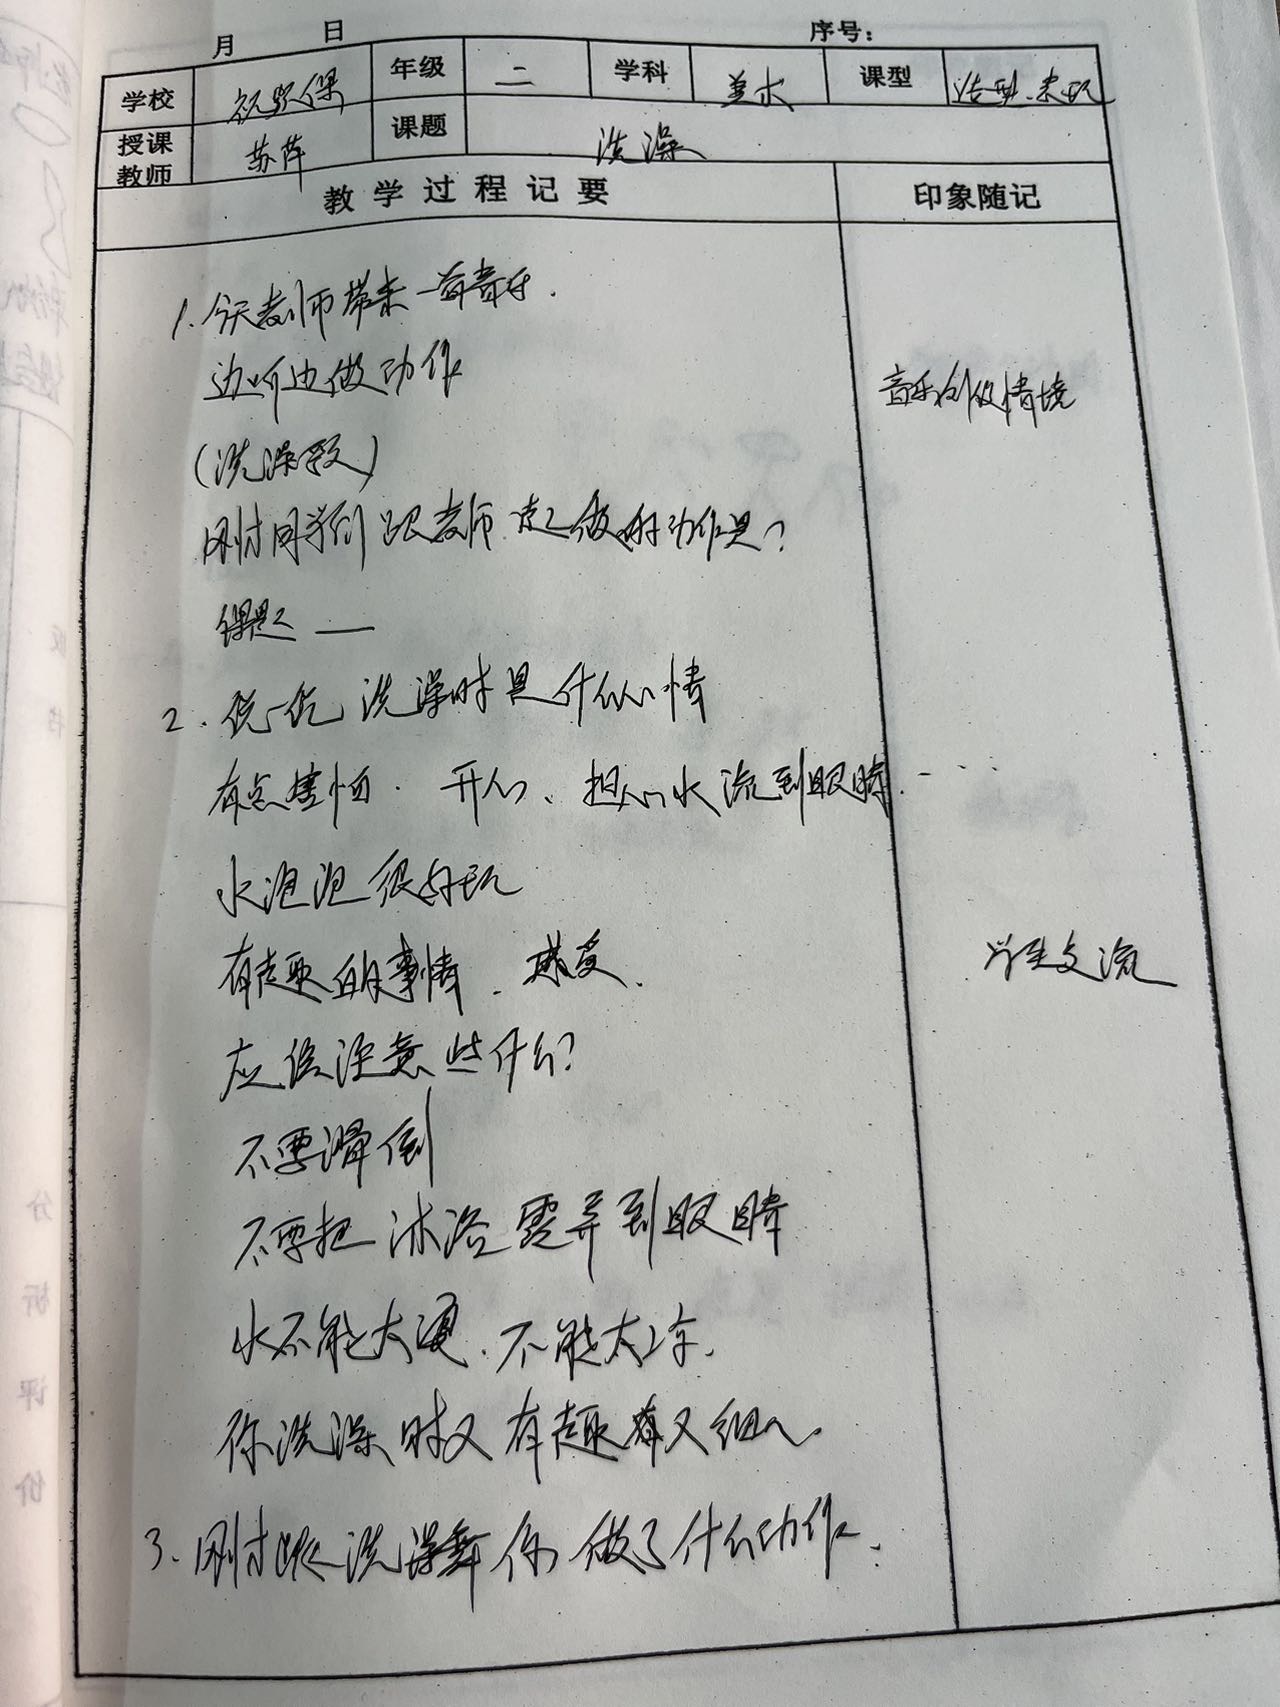 月 日 序号：
学校 年级 二 学科 美术 课型 造型·表现
授课教师 苏萍 课题 洗澡
教学过程记要 印象随记
1. 今天老师带来一首音乐.
边听边做动作
音乐创设情境
(洗澡歌)
刚才同学们跟老师一起做的动作是?
课题 —
2. 说一说洗澡时是什么心情
有点害怕. 开心、担心水流到眼睛. ....
水泡泡很好玩
有趣的事情. 感受.
学生交流
应该注意些什么?
不要滑倒
不要把沐浴露弄到眼睛
水不能太烫. 不能太冷.
你洗澡时又有趣有又细心.
3. 刚才跳洗澡舞你做了什么动作.
反
书
分
析
评
价